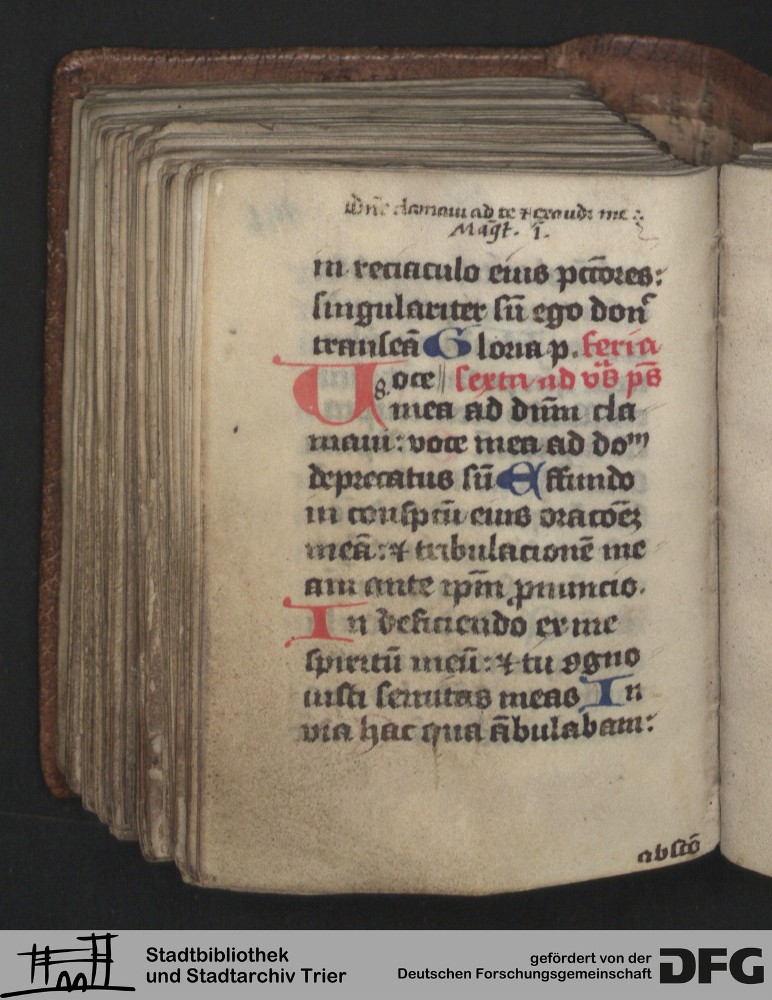 Dn̄e clamaui ad te ⁊ exaudi me :
Mag̃t. i.
in reciaculo eius pctōres:
singulariter sū ego don̄
transeā Gloria p. feria
Voce sexta ad v̄ꝭ p̄s
8. mea ad dn̄m cla
maui: voce mea ad doᵐ
deprecatus sū Effundo
in conspcū eius oracōeȝ
meā: ⁊ tribulacionē me
am ante ip̄m ꝓnuncio.
In deficiendo ex me
spiritū meū: ⁊ tu ꝯgno
uisti semitas meas In
via hac qua ābulabam:
abscō
Stadtbibliothek
und Stadtarchiv Trier
gefördert von der
Deutschen Forschungsgemeinschaft
DFG